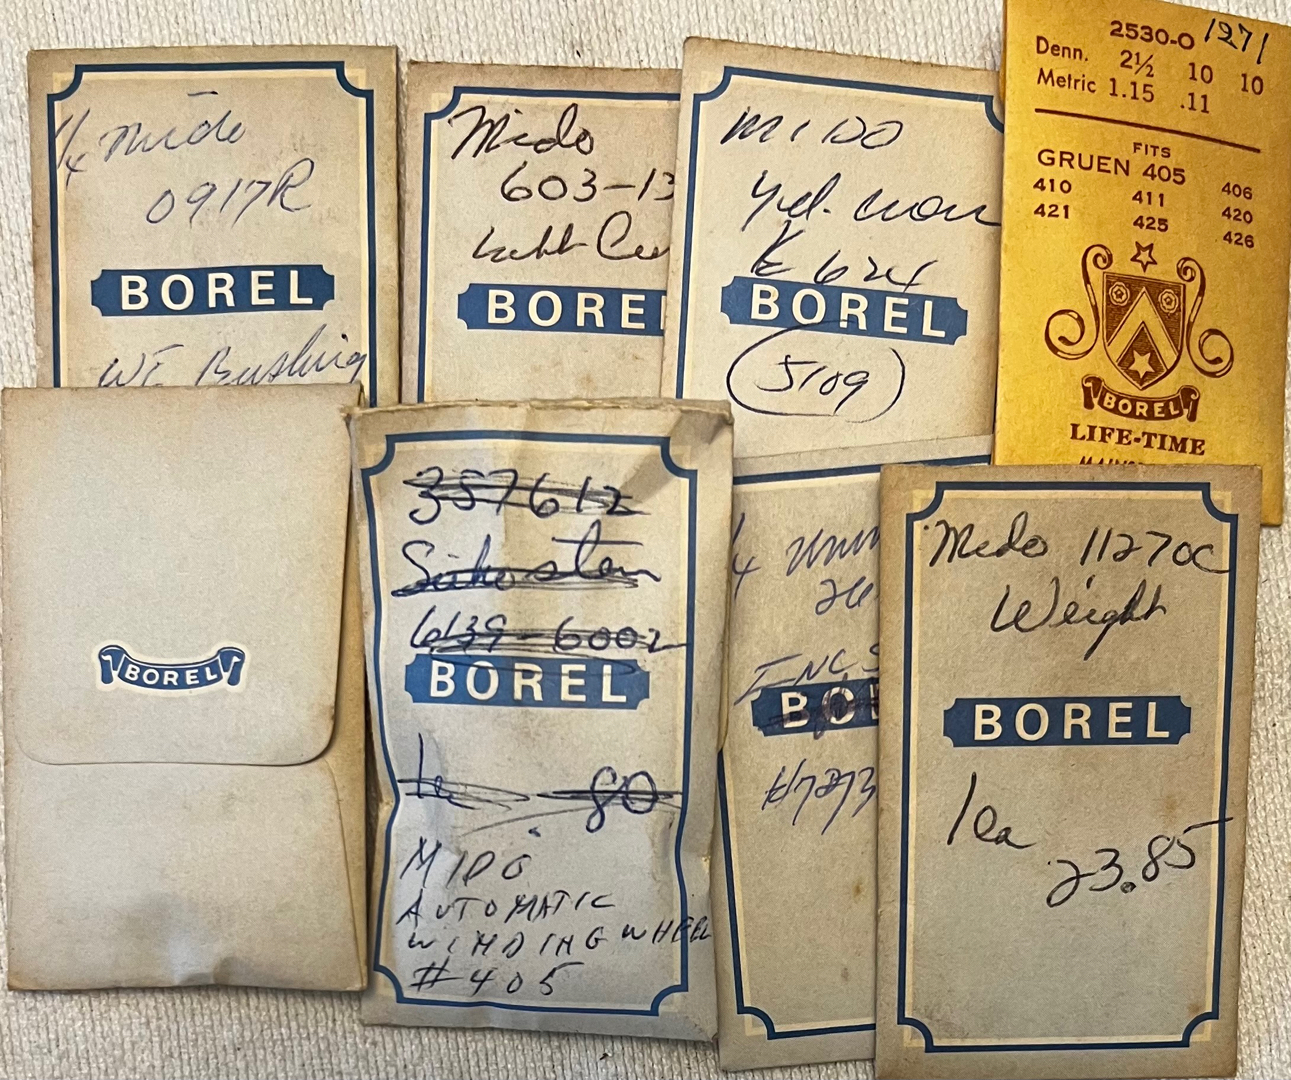 1/4 Mido
0917R
BOREL
WE Bushing
Mido
603-13
BORE
MIDO
Yel. crow
E 624
BOREL
5109
2530-O 1271
Denn. 2½ 10 10
Metric 1.15 .11
FITS
GRUEN 405 406
410 411 420
421 425 426
BOREL
LIFE-TIME
BOREL
357612
Seiko stem
6139-6002
BOREL
1ea 80
MIDO
AUTOMATIC
WINDING WHEEL
#405
1/4
INC
BO
#7273
Mido 1127OC
Weight
BOREL
1ea
23.85